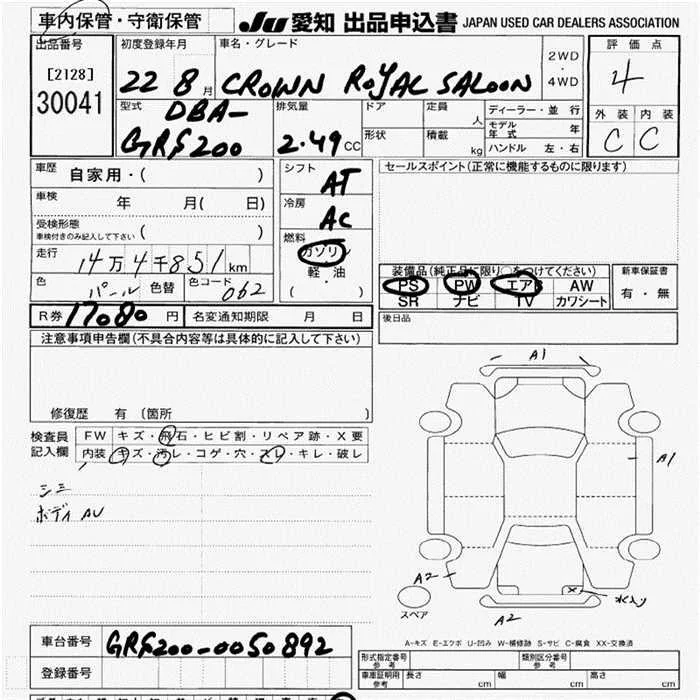 車内保管・守衛保管
JU 愛知 出品申込書 JAPAN USED CAR DEALERS ASSOCIATION
出品番号
[2128]
30041
初度登録年月
22 8月
車名・グレード
CROWN ROYAL SALOON
2WD
・
4WD
評価点
4
外装 内装
C C
型式
DBA-
GRS200
排気量
2.49 CC
ドア
形状
定員 人
積載 kg
ディーラー・並行
モデル年式 年
ハンドル 左・右
車歴
自家用・( )
車検
年 月( 日)
受検形態
車検付きのみ記入して下さい ( )
走行
14万4千851km
色
パール
色替
色コード
062
シフト
AT
冷房
AC
燃料
ガソリン
軽・油
( )
セールスポイント(正常に機能するものに限ります)
装備品(純正品に限り○をつけてください)
PS PW エアB AW
SR ナビ TV カワシート
新車保証書
有・無
後日品
R券 17080 円
名変通知期限 月 日
注意事項申告欄(不具合内容等は具体的に記入して下さい)
修復歴 有 〔箇所 〕
検査員
記入欄
FW キズ・飛石・ヒビ割・リペア跡・X要
内装 キズ・汚レ・コゲ・穴・スレ・キレ・破レ
ボディ AU
A1
A1
A2
A2
スペア
A-キズ E-エクボ U-凹み W-補修跡 S-サビ C-腐食 XX-交換済
車台番号
GRS200-0050892
登録番号
形式指定番号
参考
類別区分番号
参考
車庫証明用
参考
長さ cm 幅 cm 高さ cm